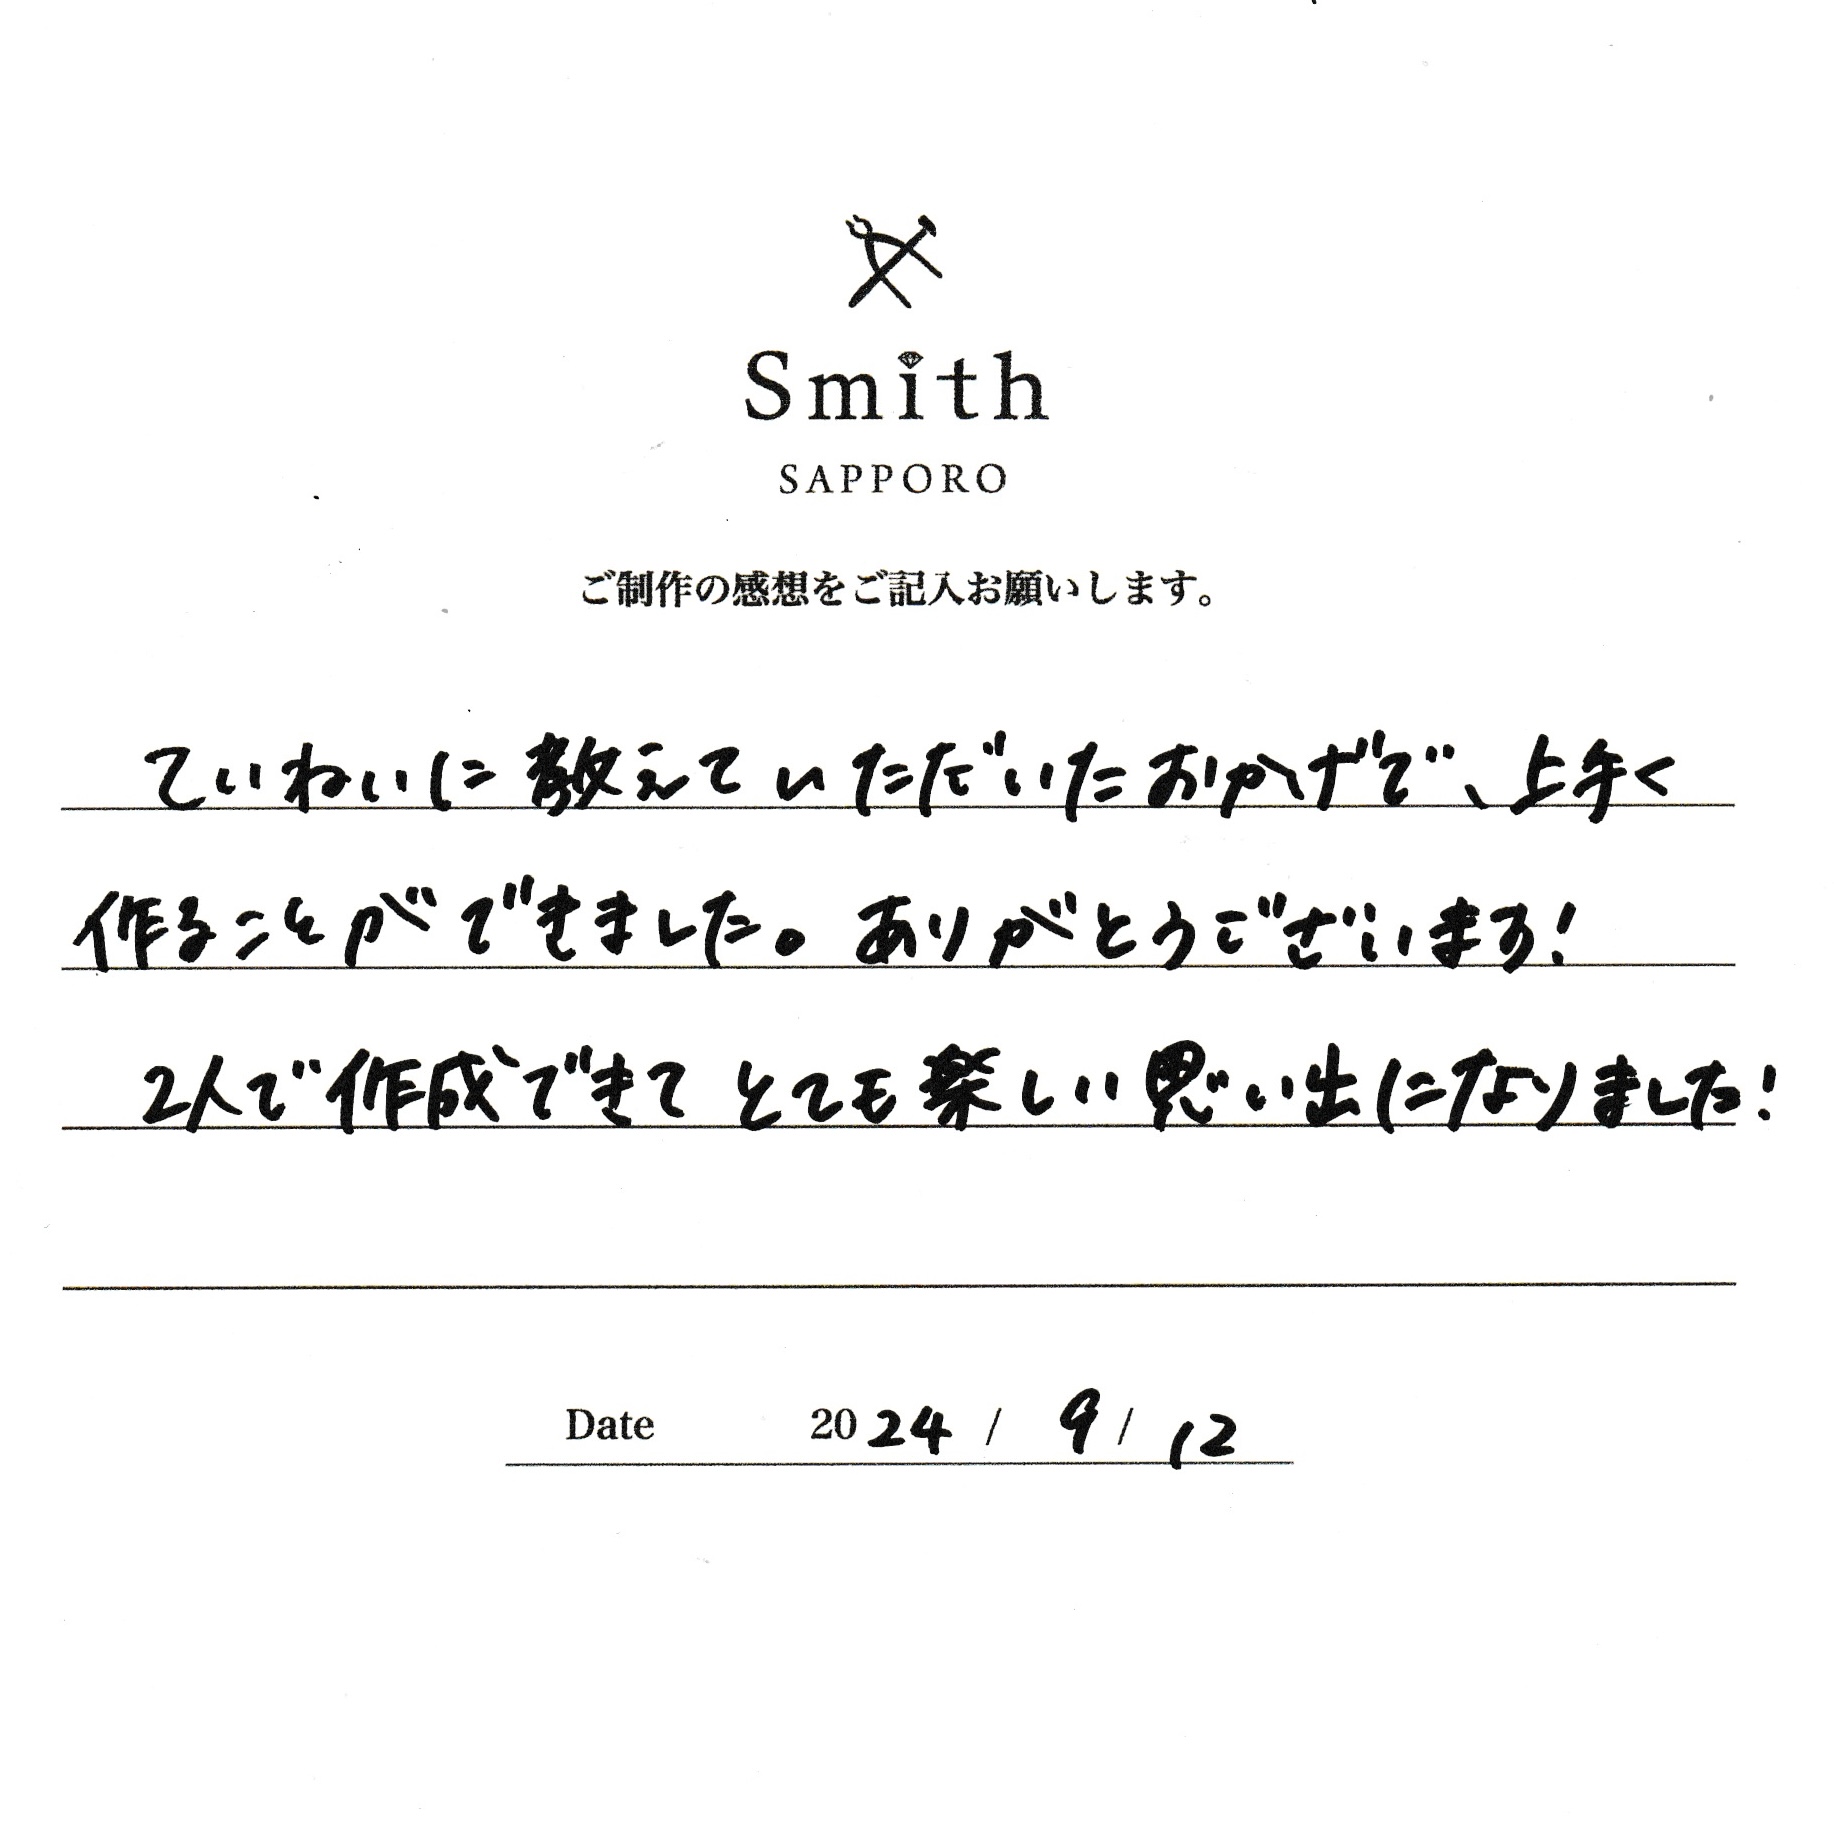 Smith
SAPPORO
ご制作の感想をご記入お願いします。
ていねいに教えていただいたおかげで、上手く
作ることができました。ありがとうございます!
2人で作成できてとても楽しい思い出になりました!
Date 2024 / 9 / 12